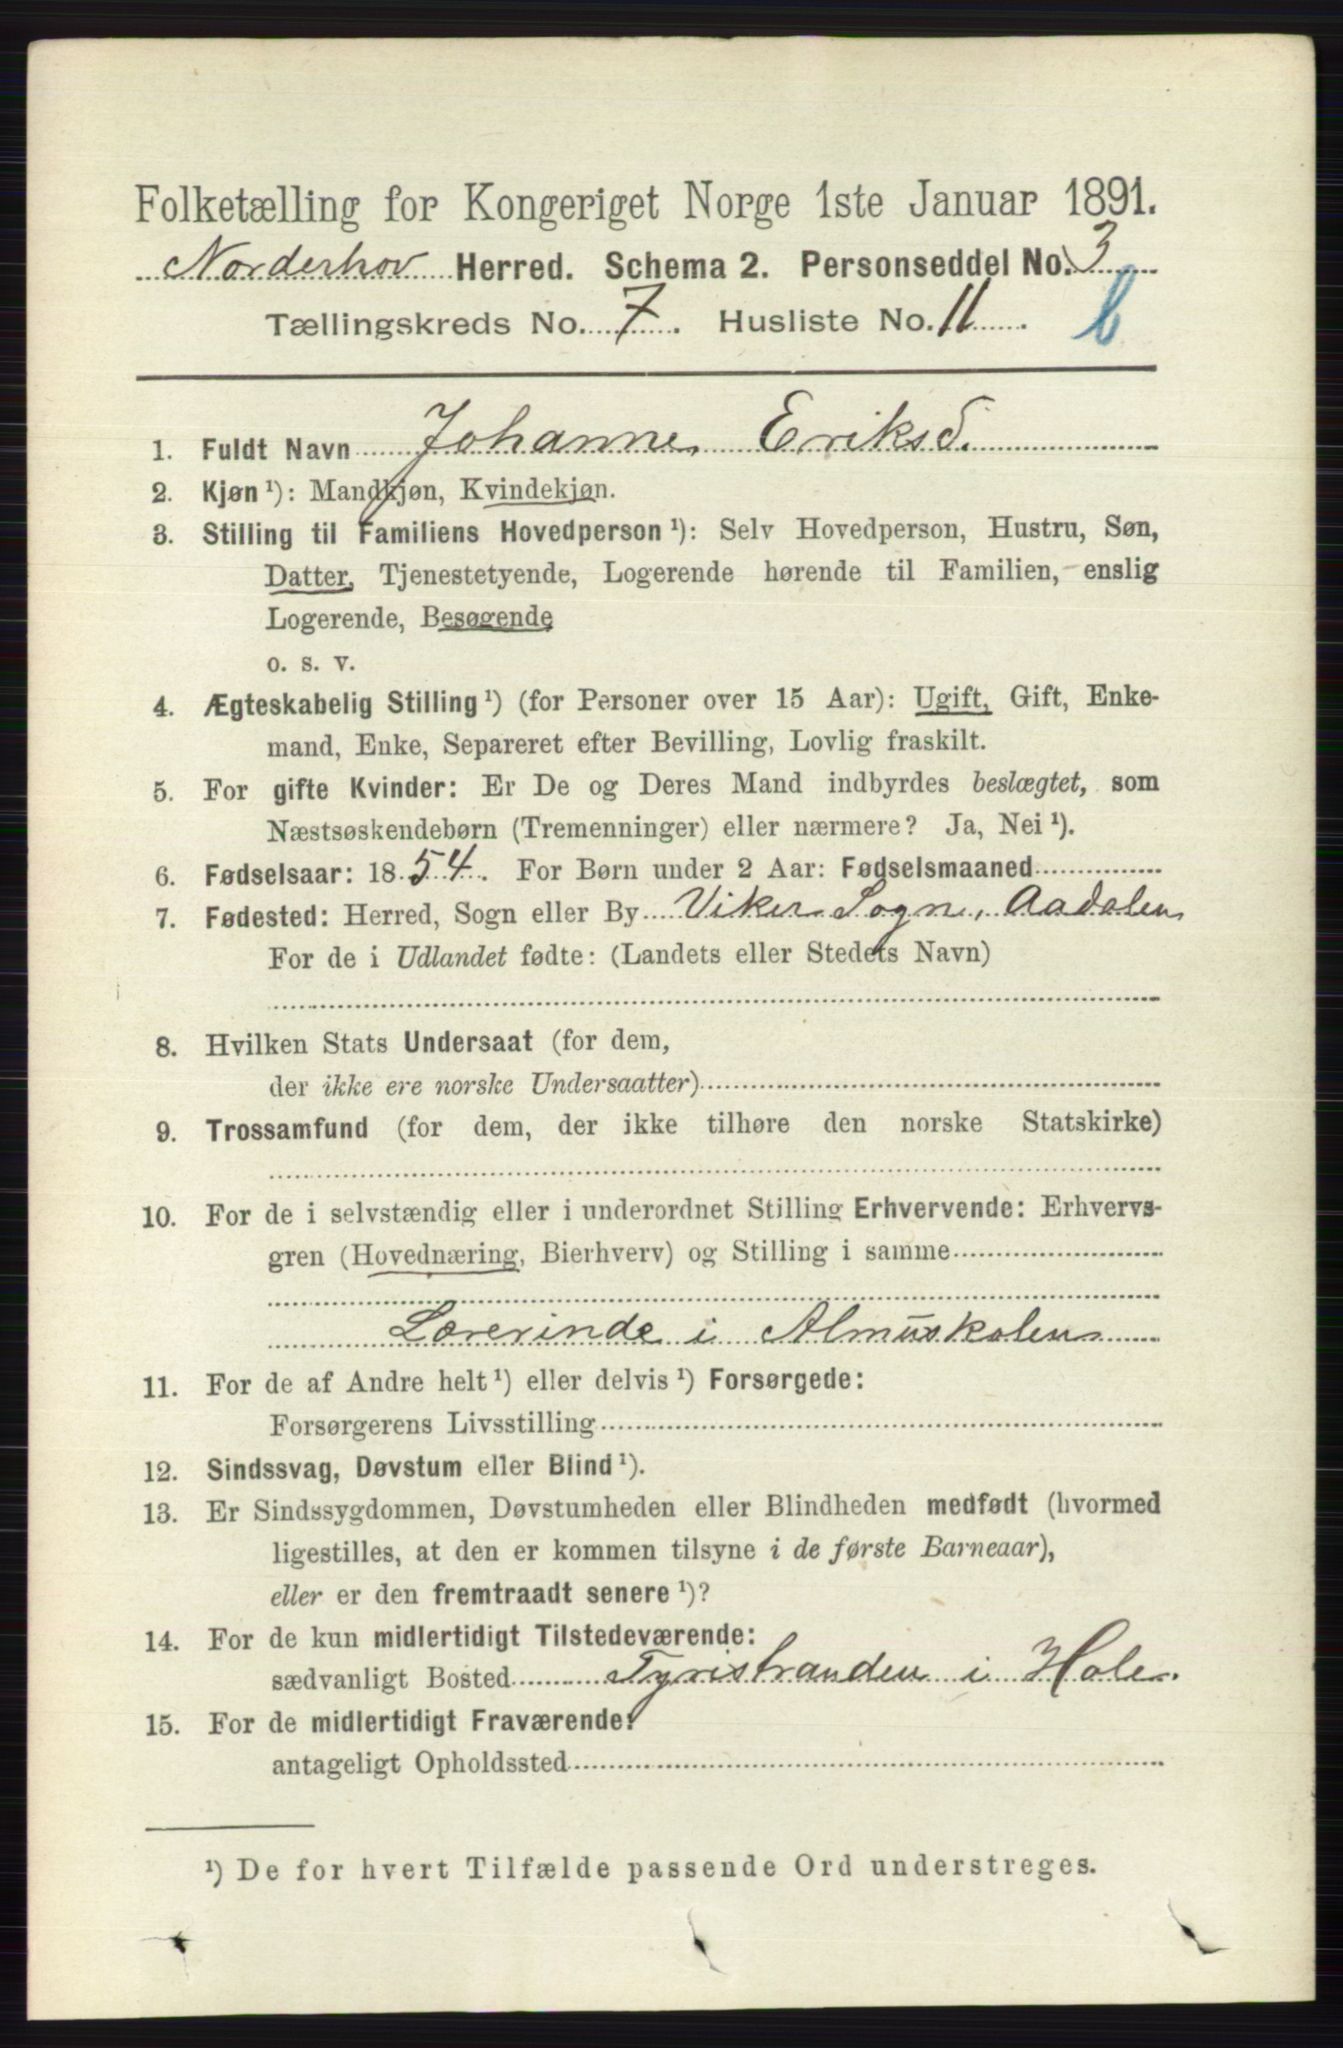 Folketælling for Kongeriget Norge 1ste Januar 1891.
Norderhov Herred. Schema 2. Personseddel No. 3
Tællingskreds No. 7. Husliste No. 11 b
1. Fuldt Navn Johanne Eriksd.
2. Kjøn ¹): Mandkjøn, Kvindekjøn.
3. Stilling til Familiens Hovedperson ¹): Selv Hovedperson, Hustru, Søn,
Datter, Tjenestetyende, Logerende hørende til Familien, enslig
Logerende, Besøgende
o. s. v.
4. Ægteskabelig Stilling ¹) (for Personer over 15 Aar): Ugift, Gift, Enke-
mand, Enke, Separeret efter Bevilling, Lovlig fraskilt.
5. For gifte Kvinder: Er De og Deres Mand indbyrdes beslægtet, som
Næstsøskendebørn (Tremenninger) eller nærmere? Ja, Nei ¹).
6. Fødselsaar: 1854. For Børn under 2 Aar: Fødselsmaaned
7. Fødested: Herred, Sogn eller By Viker Sogn, Aadalen
For de i Udlandet fødte: (Landets eller Stedets Navn)
8. Hvilken Stats Undersaat (for dem,
der ikke ere norske Undersaatter)
9. Trossamfund (for dem, der ikke tilhøre den norske Statskirke)
10. For de i selvstændig eller i underordnet Stilling Erhvervende: Erhvervs-
gren (Hovednæring, Bierhverv) og Stilling i samme
Lærerinde i Almuskolen
11. For de af Andre helt ¹) eller delvis ¹) Forsørgede:
Forsørgerens Livsstilling
12. Sindssvag, Døvstum eller Blind ¹).
13. Er Sindssygdommen, Døvstumheden eller Blindheden medfødt (hvormed
ligestilles, at den er kommen tilsyne i de første Barneaar),
eller er den fremtraadt senere ¹)?
14. For de kun midlertidigt Tilstedeværende:
sædvanligt Bosted Tyristranden i Hole.
15. For de midlertidigt Fraværende:
antageligt Opholdssted
¹) De for hvert Tilfælde passende Ord understreges.